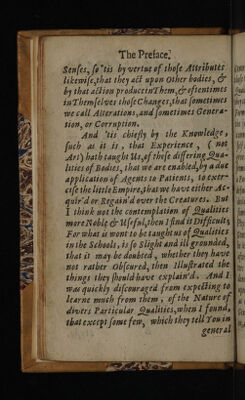 The Preface.
Senses, so 'tis by vertue of those Attributes
likewise, that they act upon other bodies, &
by that action produce in Them, & oftentimes
in Themselves those Changes, that sometimes
we call Alterations, and sometimes Genera-
tion, or Corruption.
And 'tis chiefly by the Knowledge,
such as it is, that Experience, ( not
Art) hath taught Us, of these differing Qua-
lities of Bodies, that we are enabled, by a due
application of Agents to Patients, to exer-
cise the little Empire, that we have either Ac-
quir'd or Regain'd over the Creatures. But
I think not the contemplation of Qualities
more Noble & Useful, then I find it Difficult;
For what is wont to be taught us of Qualities
in the Schools, is so Slight and ill grounded,
that it may be doubted, whether they have
not rather Obscured, then Illustrated the
things they should have explain'd. And I
was quickly discouraged from expecting to
learne much from them, of the Nature of
divers Particular Qualities, when I found,
that except some few, which they tell You in
general